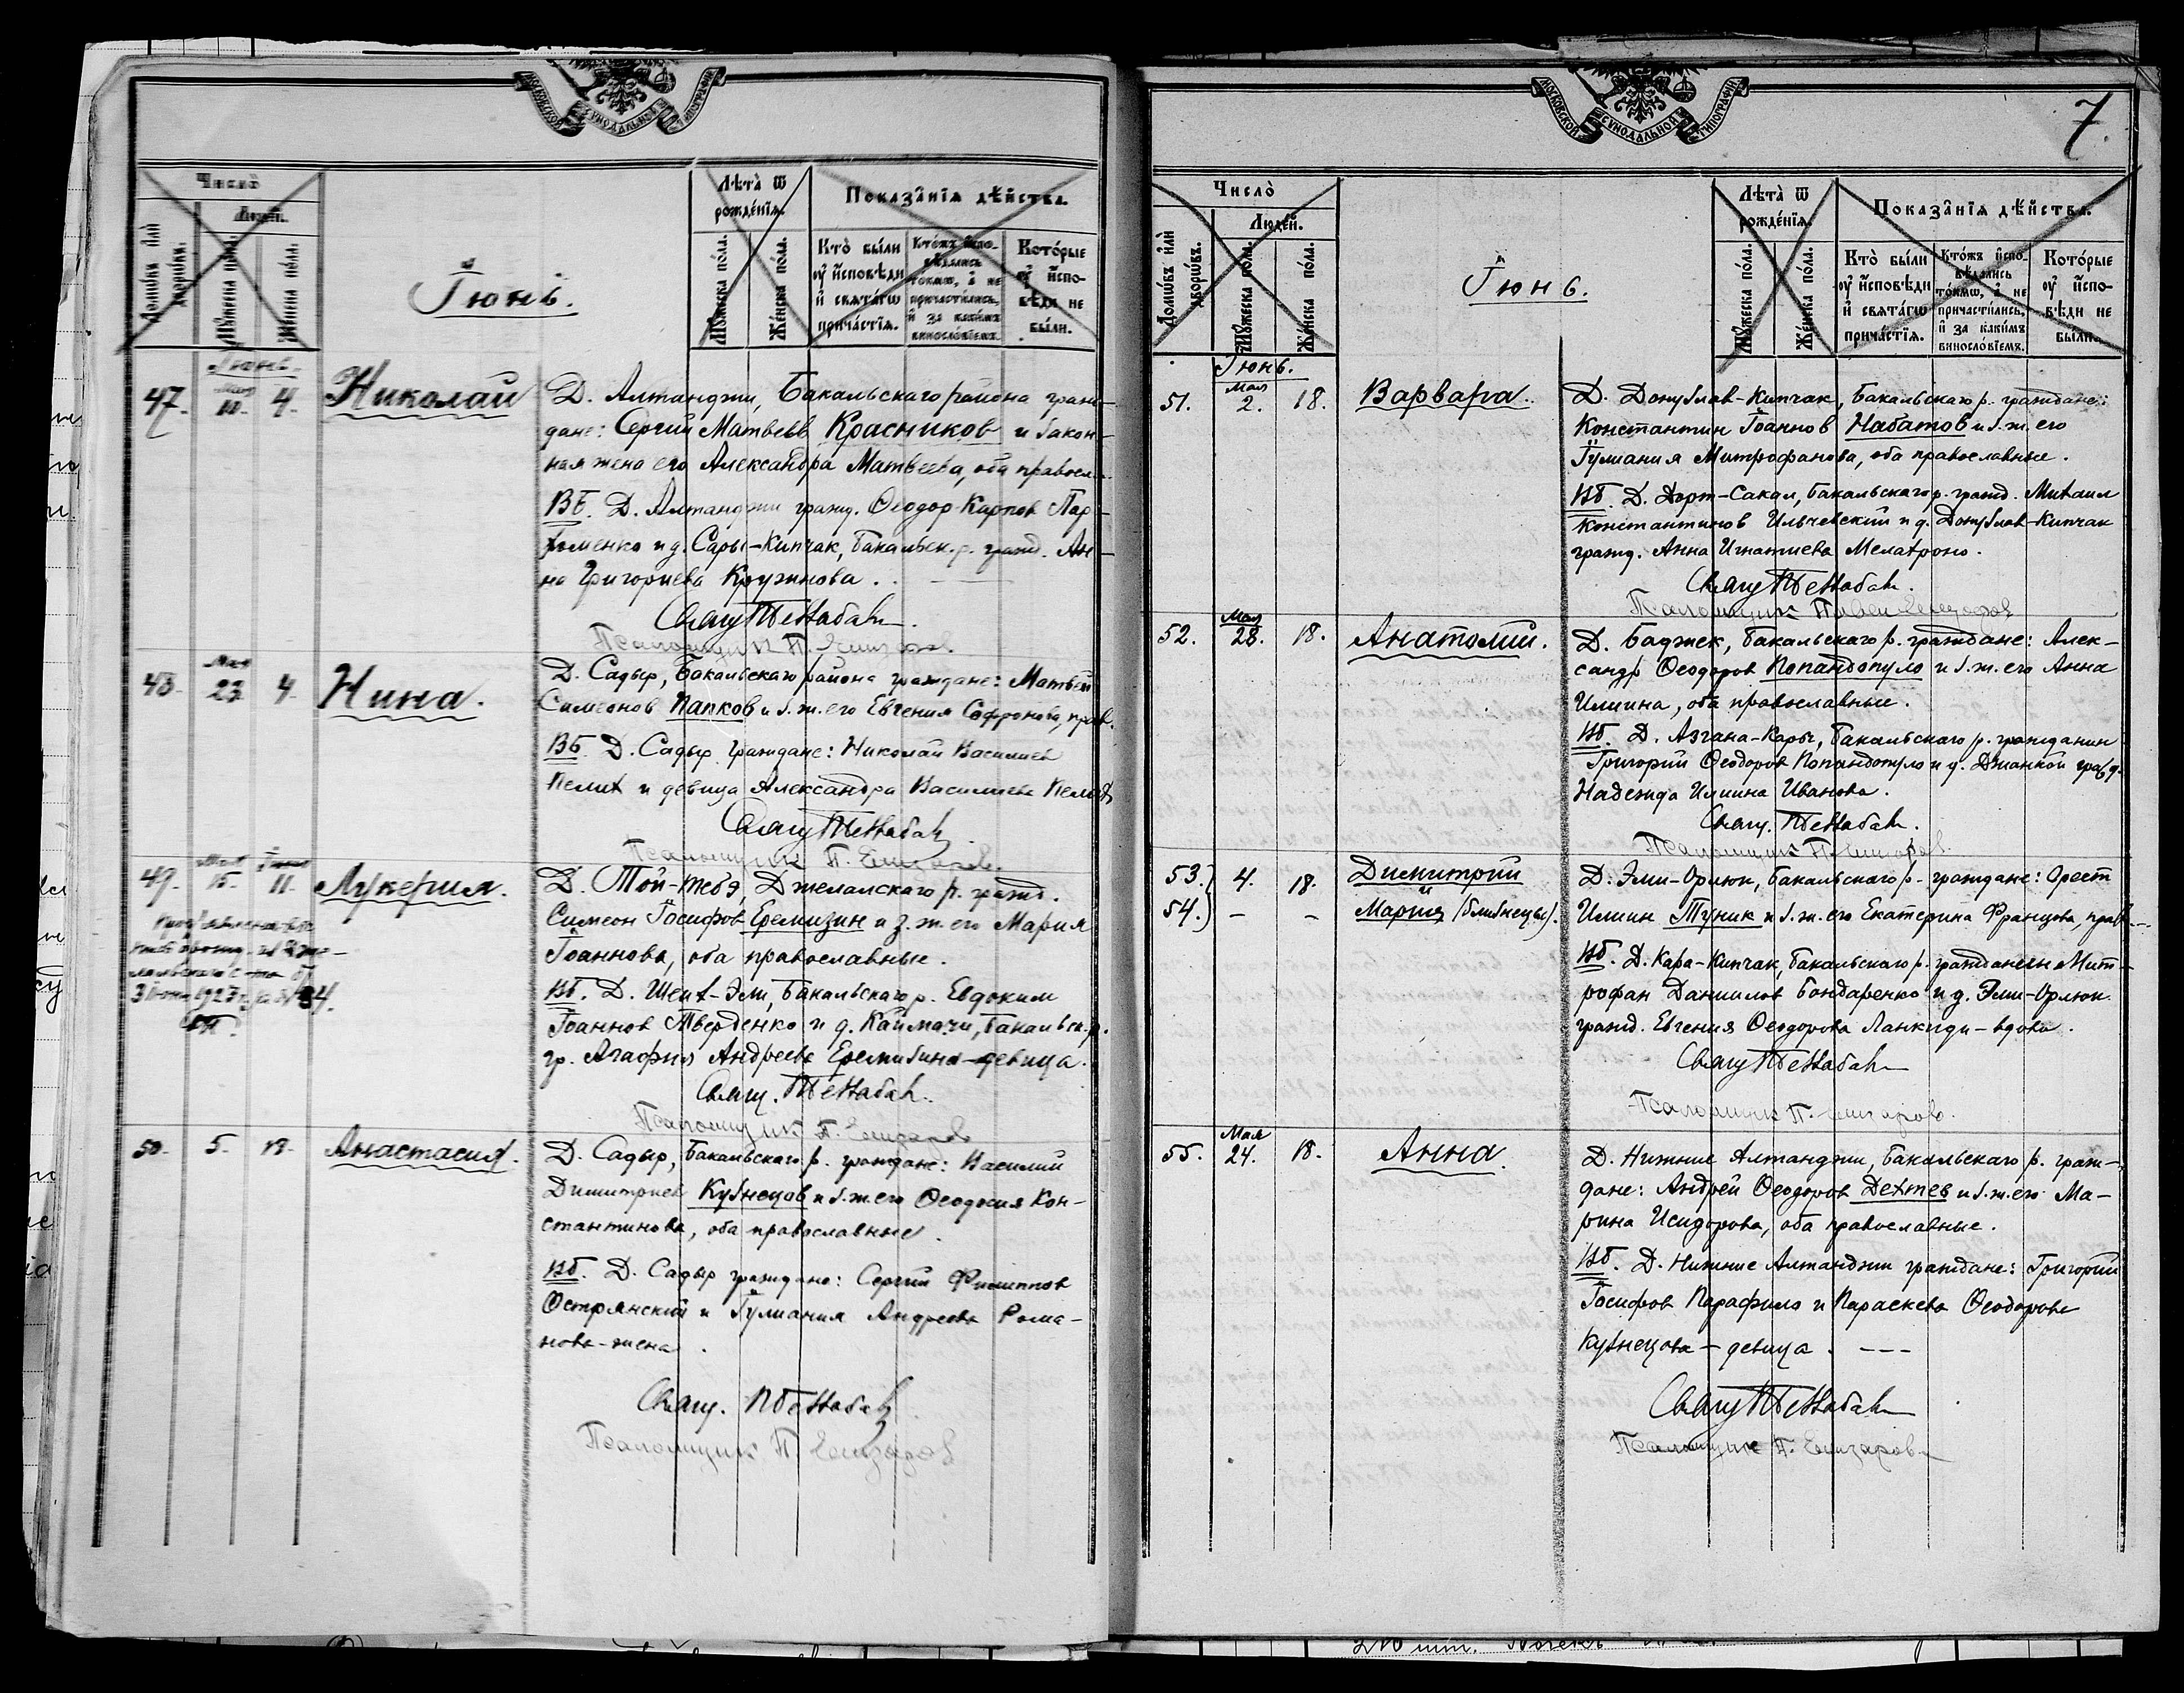 МОСКОВСКОЙ СУНОДАЛЬНОЙ ТИПОГРАФІИ
Число̀
Людей.
Домѡвъ и҆лѝ дворѡвъ.
Мꙋ́жеска по́ла.
Же́нска по́ла.
Іюнь.
Лѣта̀ ѿ рожде́нїѧ.
Мꙋ́жеска по́ла.
Же́нска по́ла.
Показа̑нїѧ дѣ́йства.
Кто̀ бы́ли ᲂу҆ и҆сповѣ́ди и҆ свѧта́гѡ прича́стїѧ.
Кто́жъ и҆спо-
вѣ́дались то́кмѡ, а҆ не причасти́лись, и҆ за каки́мъ виносло́вїемъ.
Кото́рые ᲂу҆ и҆спо-
вѣ́ди не бы́ли.
Іюнь.
47. Мая 10. 4. Николай
Д. Алтанджи, Бакальскаго района граж-
дане: Сергий Матвеев Красников и закон-
ная жена его Александра Матвеева, оба правосл.
ВБ. Д. Алтанджи гражд. Ѳеодор Карпов Пар-
хоменко и д. Сары-Кипчак, Бакальск. р. гражд. Ан-
на Григориева Кружнова.
Свящ.
Псаломщик П. Елизаров.
48. Мая 23. 4. Нина.
Д. Садыр, Бакальскаго района граждане: Матвей
Симеонов Папков и з. ж. его Евгения Софронова, прав.
ВБ. Д. Садыр граждане: Николай Василиев
Пелих и девица Александра Василиева Пелих
Свящ.
Псаломщик П. Елизаров.
49. Мая 15. Іюня 11. Лукерия.
3 Июня 1923 г. за № 34.
Д. Той-Тебэ, Джелалскаго р. гражд.
Симеон Іосифов Еремизин и з. ж. его Мария
Іоаннова, оба православные.
ВБ. Д. Шеих-Эли, Бакальскаго р. Евдоким
Іоаннов Тверденко и д. Каймачи, Бакальск. р.
гр. Агафия Андреева Еремизина-девица.
Свящ.
Псаломщик П. Елизаров
50. 5. 18. Анастасия.
Д. Садыр, Бакальскаго р. граждане: Василий
Димитриев Кузнецов и з. ж. его Ѳеодосия Кон-
стантинова, оба православные.
ВБ. Д. Садыр граждане: Сергий Филиппов
Острянский и Іулиания Андреева Рома-
нова-жена.
Свящ.
Псаломщик П. Елизаров
МОСКОВСКОЙ СУНОДАЛЬНОЙ ТИПОГРАФІИ
7.
Число̀
Людей.
Домѡвъ и҆лѝ дворѡвъ.
Мꙋ́жеска по́ла.
Же́нска по́ла.
Іюнь.
Лѣта̀ ѿ рожде́нїѧ.
Мꙋ́жеска по́ла.
Же́нска по́ла.
Показа̑нїѧ дѣ́йства.
Кто̀ бы́ли ᲂу҆ и҆сповѣ́ди и҆ свѧта́гѡ прича́стїѧ.
Кто́жъ и҆спо-
вѣ́дались то́кмѡ, а҆ не причасти́лись, и҆ за каки́мъ виносло́вїемъ.
Кото́рые ᲂу҆ и҆спо-
вѣ́ди не бы́ли.
Іюнь.
51. Мая 2. 18. Варвара.
Д. Донузлав-Кипчак, Бакальскаго р. граждане:
Константин Іоаннов Набатов и з. ж. его
Іулиания Митрофанова, оба православные.
ВБ. Д. Дорт-Сакал, Бакальскаго р. гражд. Михаил
Константинов Ильчевский и д. Донузлав-Кипчак
гражд. Анна Игнатиева
Свящ.
Псаломщик Павел Елизаров
52. Мая 28. 18. Анатолий.
Д. Баджек, Бакальскаго р. граждане: Алек-
сандр Ѳеодоров Попандопуло и з. ж. его Анна
Илиина, оба православные.
ВБ. Д. Азгана-Кары, Бакальскаго р. гражданин
Григорий Ѳеодоров Попандопуло и д. Джанкой гражд.
Надежда Илиина Иванова.
Свящ.
Псаломщик П. Елизаров.
53.) 4. 18. Димитрий
и
54.) – – Мария (близнецы).
Д. Эли-Орлюк, Бакальскаго р. граждане: Орест
Илиин Туник и з. ж. его Екатерина Францова, прав.
ВБ. Д. Кара-Кипчак, Бакальскаго р. гражданин Мит-
рофан Даниилов Бондаренко и д. Эли-Орлюк
гражд. Евгения Ѳеодорова Ланкиди-вдова.
Свящ.
Псаломщик П. Елизаров.
55. Мая 24. 18. Анна.
Д. Нижние Алтанджи, Бакальскаго р. граж-
дане: Андрей Ѳеодоров Дехтев и з. ж. его Ма-
рина Исидорова, оба православные.
ВБ. Д. Нижние Алтанджи граждане: Григорий
Іосифов Парафило и Параскева Ѳеодорова
Кузнецова – девица. – – –
Свящ.
Псаломщик П. Елизаров